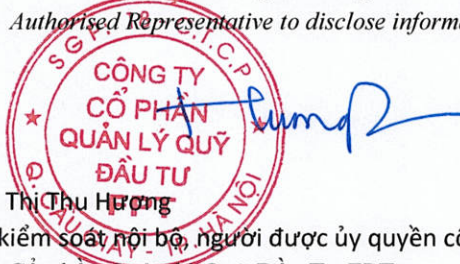 Authorised Representative to disclose inform
CÔNG TY
CỔ PHẦN
QUẢN LÝ QUỸ
ĐẦU TƯ
FPT
Q. CẦU GIẤY - TP. HÀ NỘI
Thị Thu Hương
kiểm soát nội bộ, người được ủy quyền